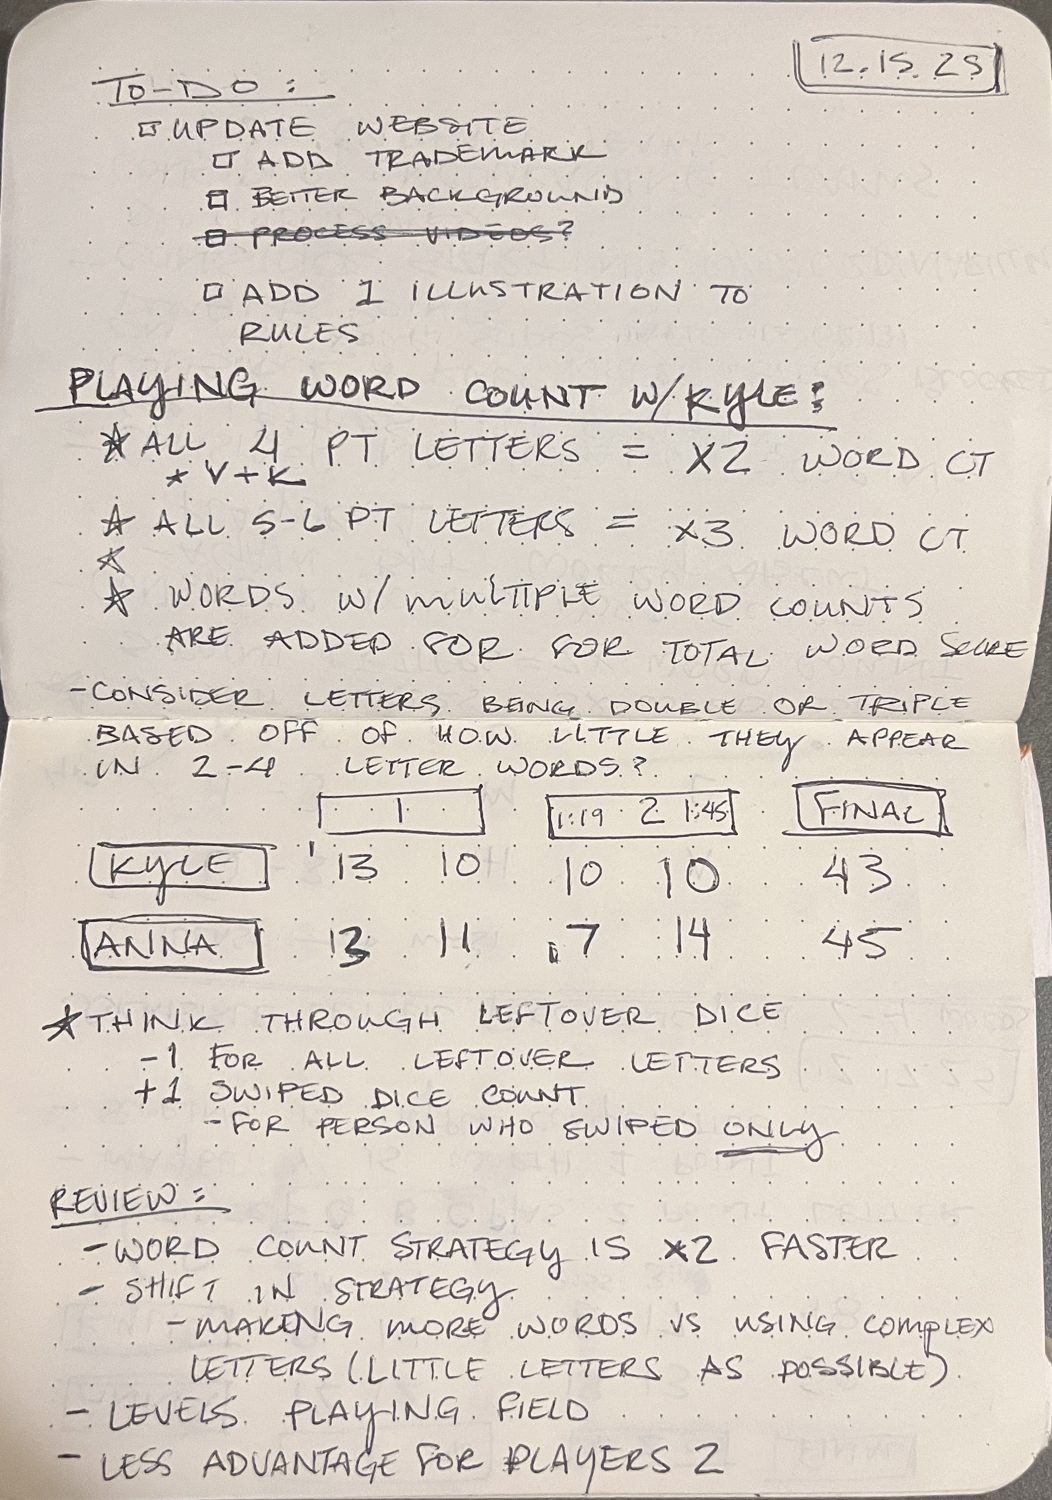 12.15.25
TO-DO:
UPDATE WEBSITE
ADD TRADEMARK
BETTER BACKGROUND
PROCESS VIDEOS?
ADD 1 ILLUSTRATION TO
RULES
PLAYING WORD COUNT W/KYLE:
ALL 4 PT LETTERS = X2 WORD CT
V+K
ALL 5-6 PT LETTERS = X3 WORD CT
WORDS W/ MULTIPLE WORD COUNTS
ARE ADDED FOR FOR TOTAL WORD SCORE
- CONSIDER LETTERS BEING DOUBLE OR TRIPLE
BASED OFF OF HOW LITTLE THEY APPEAR
IN 2-4 LETTER WORDS?
1 1:19 2 1:45 FINAL
KYLE 13 10 10 10 43
ANNA 13 11 7 14 45
THINK THROUGH LEFTOVER DICE
-1 FOR ALL LEFTOVER LETTERS
+1 SWIPED DICE COUNT
- FOR PERSON WHO SWIPED ONLY
REVIEW:
- WORD COUNT STRATEGY IS X2 FASTER
- SHIFT IN STRATEGY
- MAKING MORE WORDS VS USING COMPLEX
LETTERS (LITTLE LETTERS AS POSSIBLE)
- LEVELS PLAYING FIELD
- LESS ADVANTAGE FOR PLAYERS 2